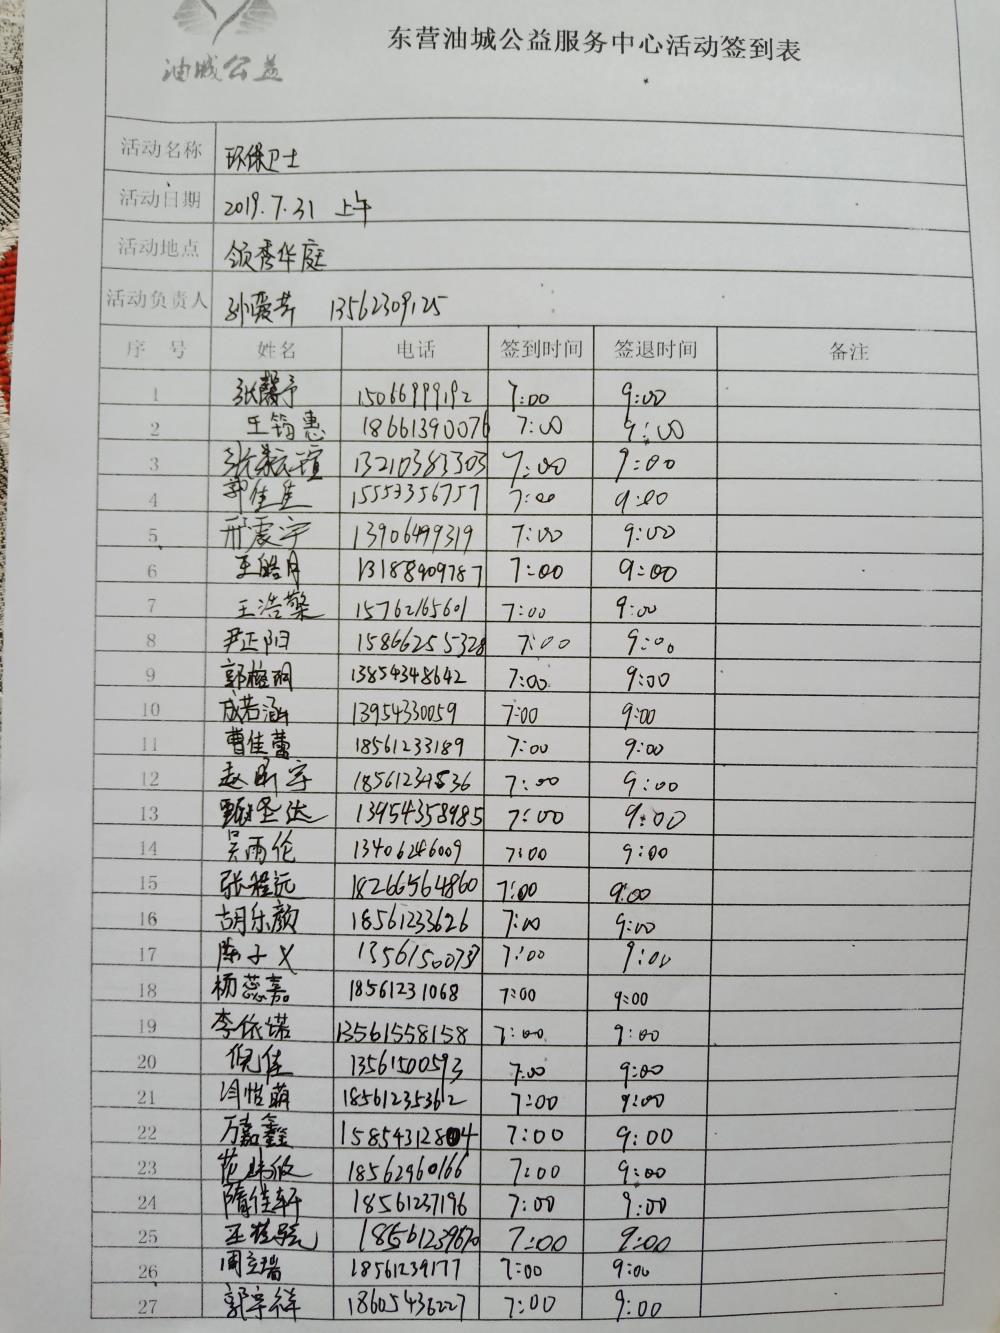 油城公益
东营油城公益服务中心活动签到表
活动名称 环保卫士
活动日期 2019.7.31 上午
活动地点 领秀华庭
活动负责人 孙爱芹 13562309125
序号 姓名 电话 签到时间 签退时间 备注
1 张馨予 15066999192 7:00 9:00
2 王筠惠 18661390076 7:00 9:00
3 13210383303 7:00 9:00
4 郭佳佳 15553356757 7:00 9:00
5 邢震宇 13906499319 7:00 9:00
6 王皓月 13188909787 7:00 9:00
7 王浩擎 15762165601 7:00 9:00
8 尹正阳 15866255328 7:00 9:00
9 13854348642 7:00 9:00
10 成若涵 13954330059 7:00 9:00
11 曹佳蕾 18561233189 7:00 9:00
12 7:00 9:00
13 甄圣达 13954358985 7:00 9:00
14 吴雨伦 13406246009 7:00 9:00
15 张程远 18266564860 7:00 9:00
16 胡乐颜 18561233626 7:00 9:00
17 陈子义 13561500737 7:00 9:00
18 杨蕊嘉 18561231068 7:00 9:00
19 李依诺 13561558158 7:00 9:00
20 倪佳 13561500593 7:00 9:00
21 冷怡萌 18561235362 7:00 9:00
22 万嘉鑫 15854312804 7:00 9:00
23 18562960166 7:00 9:00
24 隋佳轩 18561237196 7:00 9:00
25 18561239670 7:00 9:00
26 周立瑞 18561239177 7:00 9:00
27 郭宇祥 18605436227 7:00 9:00